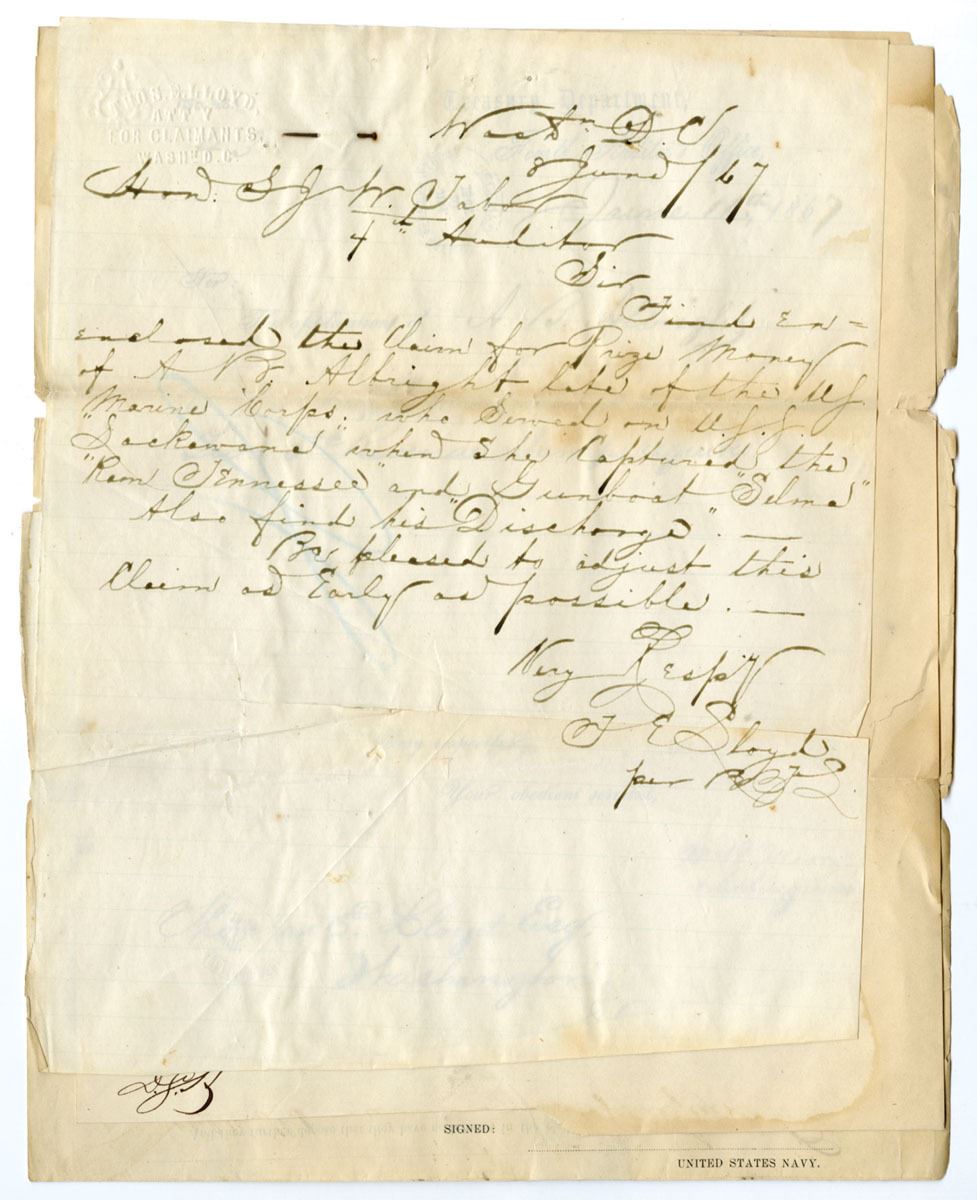 THOS. E. LLOYD,
ATT'Y
FOR CLAIMANTS,
WASH. D.C.
Treasury Department,
Washn D C
8 June /67
Hond. S J W. Tabor
4th Auditor
Sir
Find en=
enclosed the Claim for Prize Money
of A Albright late of the U.S.
"Marine Corps," who Served on U.S.S.
"Lackawana" when She Captured the
"Ram Tennessee" and Gunboat "Selma"
Also find his "Discharge". —
Be pleased to adjust this
Claim as Early as possible. —
Very Respy
T E Lloyd
per
Your obedient servant,
E. Lloyd Esq
Washington
SIGNED:
UNITED STATES NAVY.